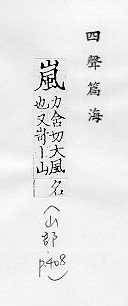 四聲篇海
嵐
力含切大風 名
也又岢丨山
（山部．p.408）